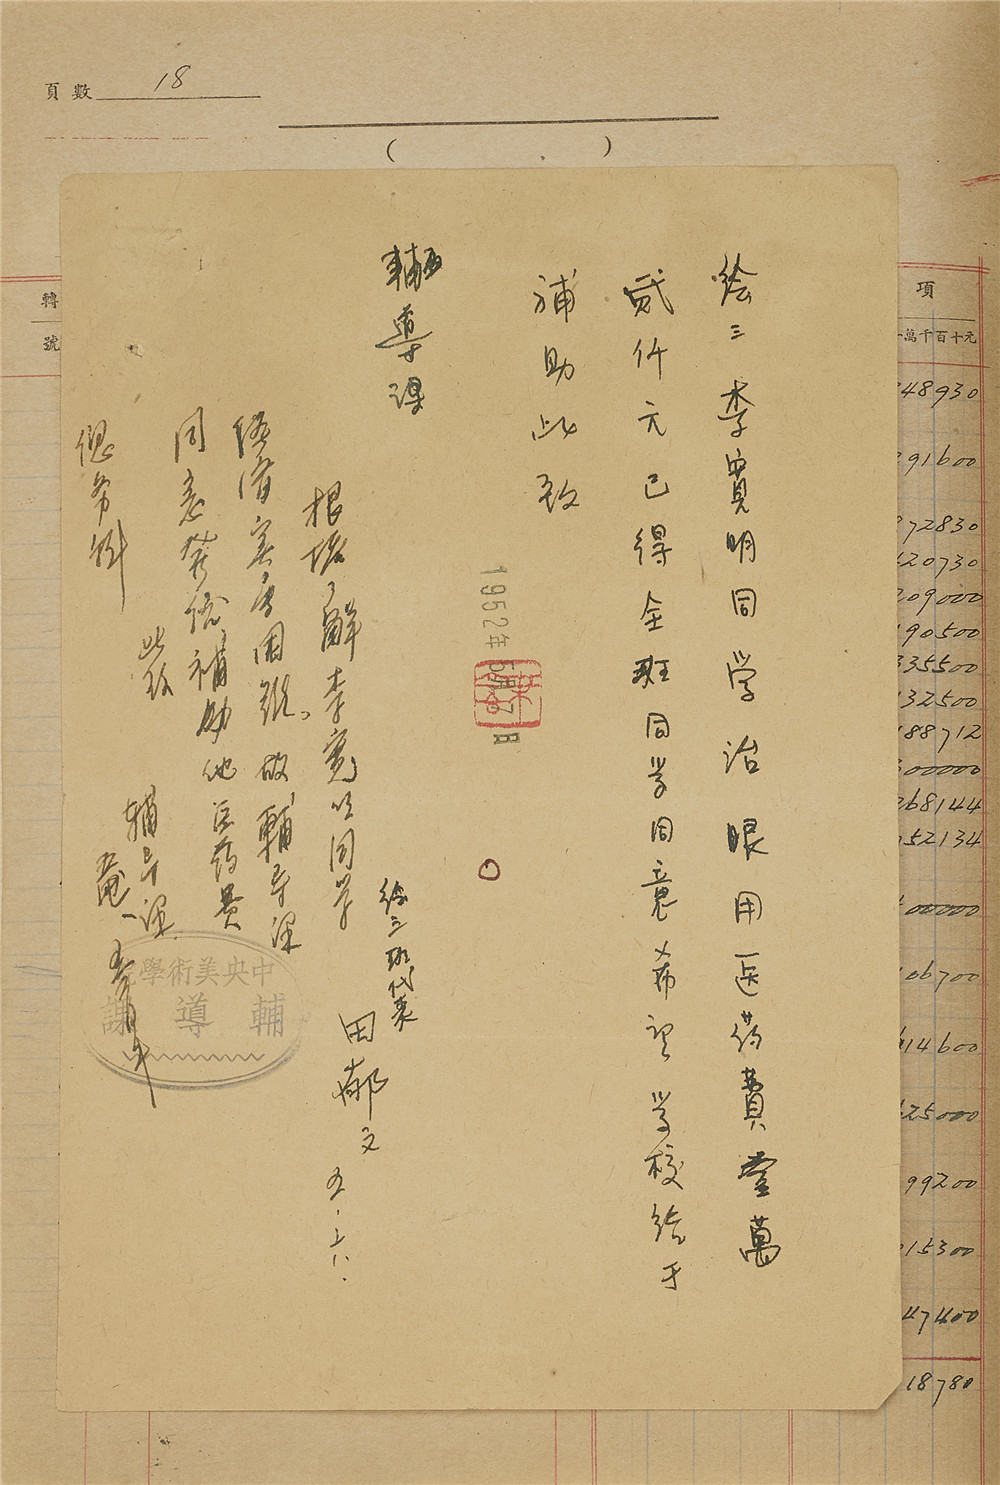 頁數 18
( )
繪三李寬明同学治眼用医药費壹萬
贰仟元已得全班同学同意希望学校给于
補助此致
輔導課
绘三班代表
田郁文 五.六.
1952年5月7日
根据了解李寬明同学
经济实有困难，故輔导课
同意發给補助他医药费
此致
总务科
辅导课
中央美術學院
輔導課
轉
號
項
萬千百十元
48930
91600
72830
20730
209000
90500
335500
132500
188712
00000
268144
52134
00000
06700
14600
25000
99200
15300
47400
18780